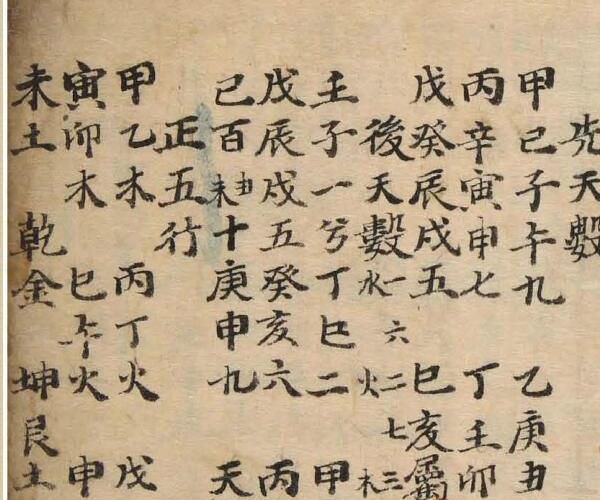 先天數
甲己子午九 乙庚丑
丙辛寅申七 丁壬卯
戊癸辰戌五 巳亥屬
後天數 水一六 火二七 木三
壬子一兮丁巳二 甲
戊辰戌五癸亥六 丙
己百丑未十庚申九 天
正五行
甲乙木 丙丁火 戊
寅卯木 巳午火 申
未土 乾金 坤艮土